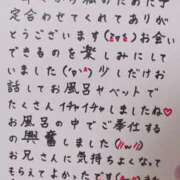 定合わせてくれてありが
とうございます(ˊᵕˋ)お会い
できるのを楽しみにして
いました('ω'ﾍ)少しだけお
話してお風呂やベットで
たくさんイチャイチャしましたね♡
お風呂の中でご奉仕する
の興奮しました(//ω//)
お兄さんに気持ちよくなって
もらえてよかったです